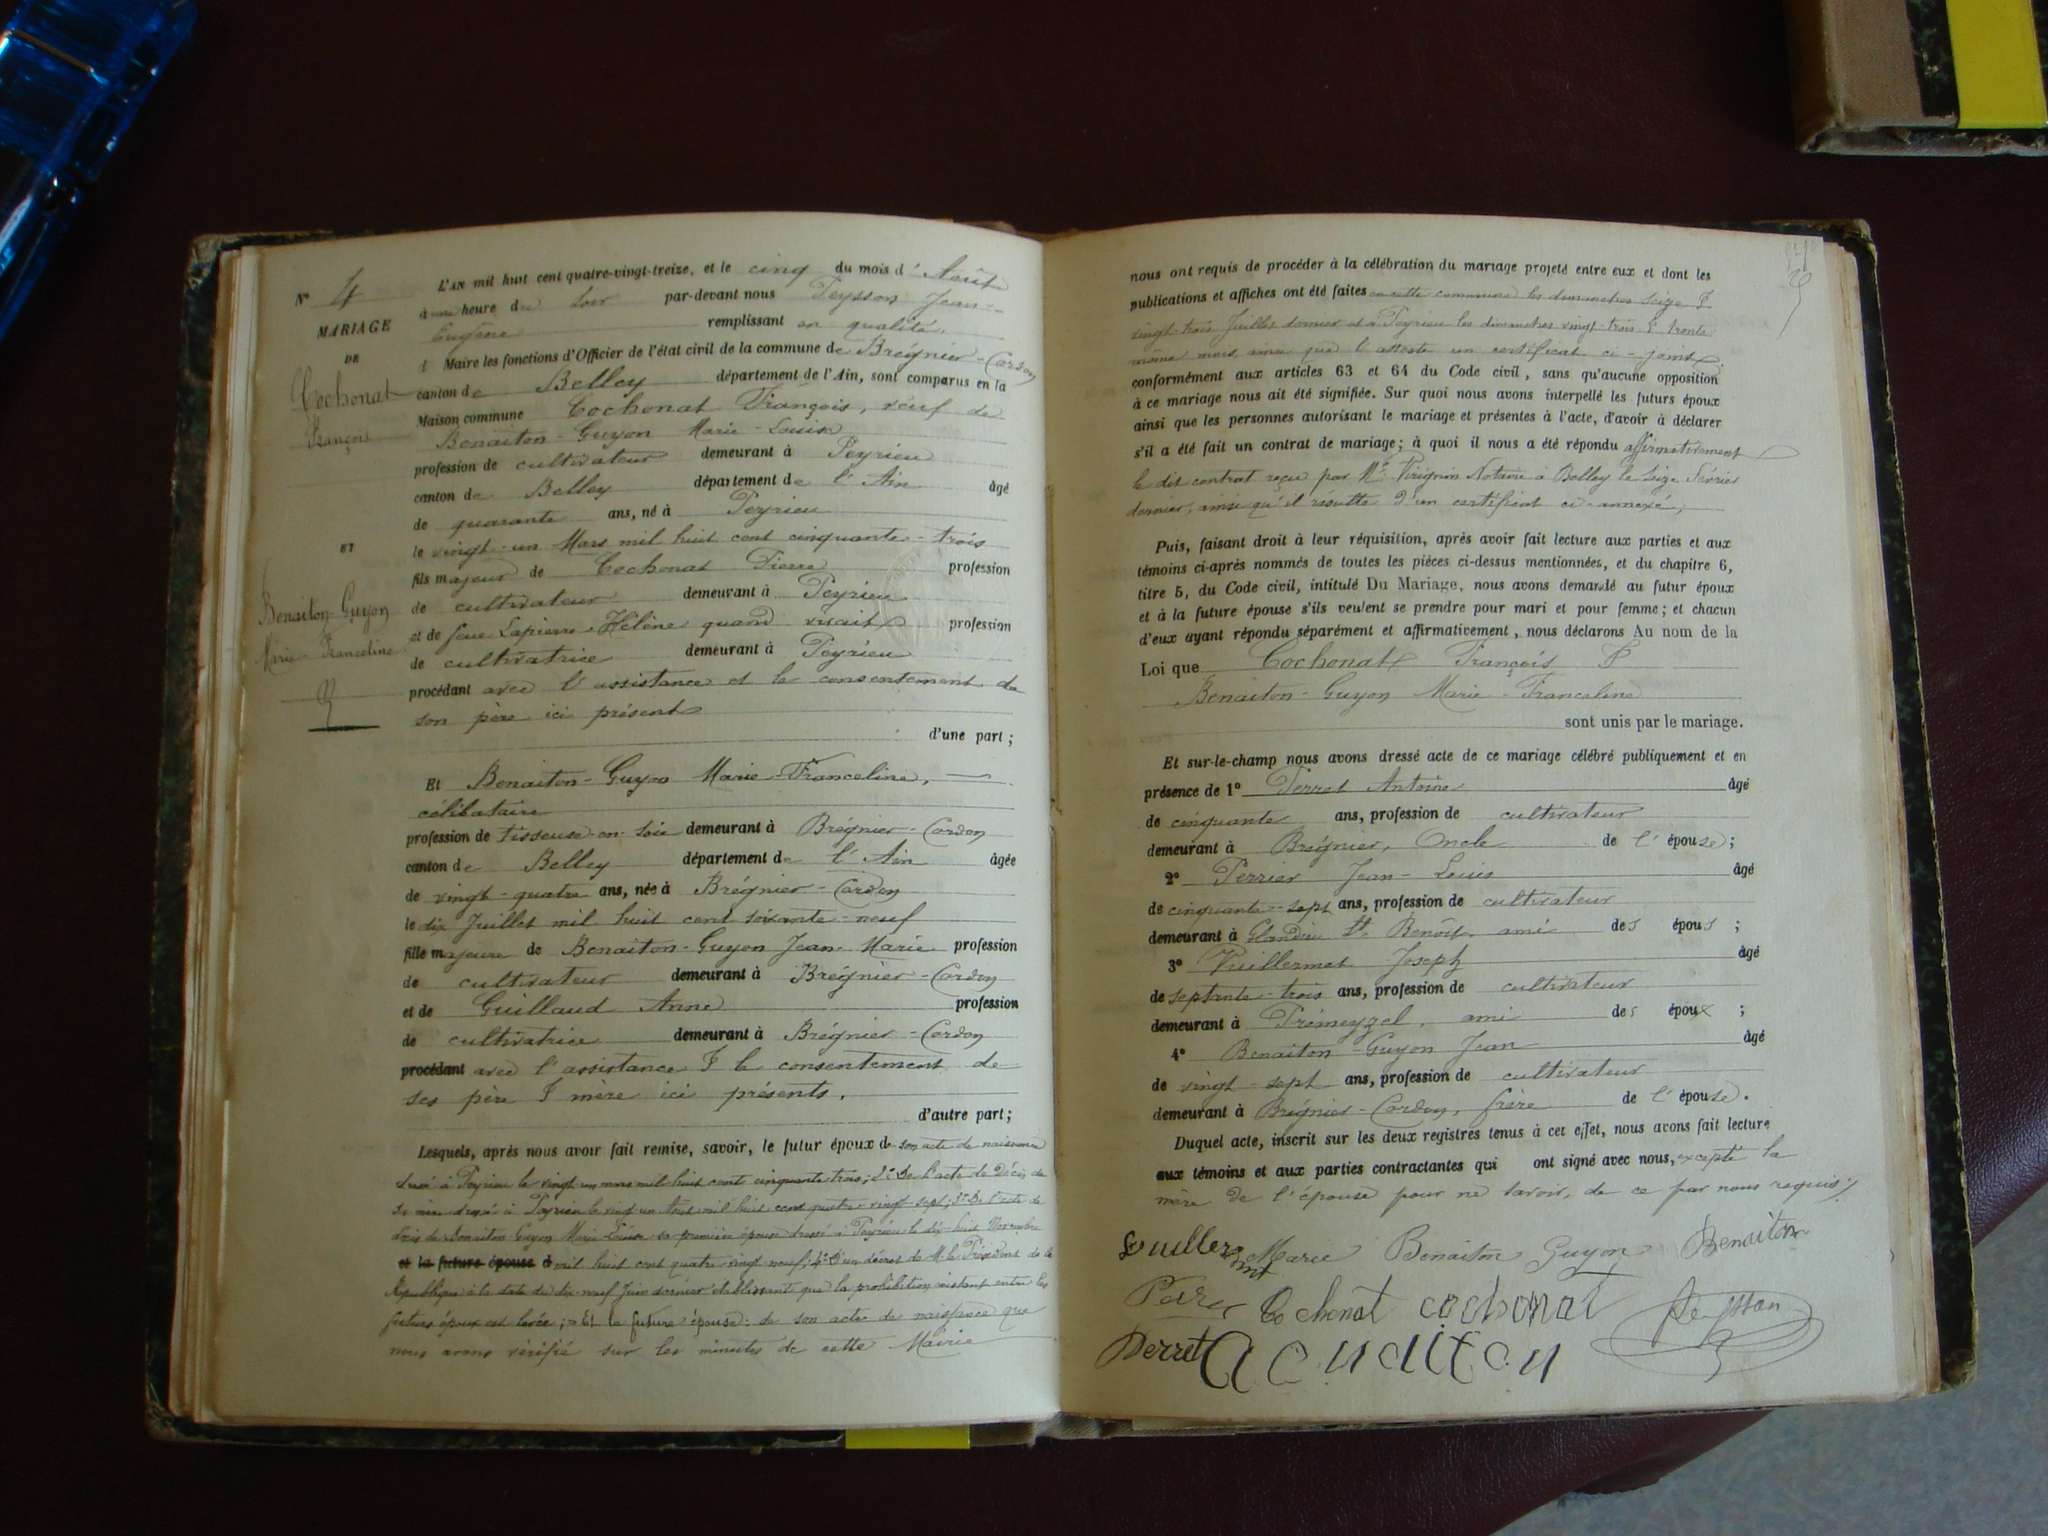 N° 4
MARIAGE
DE
Cochonat
François
ET
Benaiton-Guyon
Marie-Franceline
L'AN mil huit cent quatre-vingt-treize, et le cinq du mois d'Août
à une heure du soir par-devant nous Peysson Jean-
Eugène remplissant en qualité
d Maire les fonctions d'Officier de l'état civil de la commune de Brégnier-Cordon
canton de Belley département de l'Ain, sont comparus en la
Maison commune Cochonat François, veuf de
Benaiton-Guyon Marie-Louise
profession de cultivateur demeurant à Peyrieu
canton de Belley département de l'Ain âgé
de quarante ans, né à Peyrieu
le vingt-un Mars mil huit cent cinquante-trois
fils majeur de Cochonat Pierre profession
de cultivateur demeurant à Peyrieu
et de feue Lapierre Hélène quand vivait profession
de cultivatrice demeurant à Peyrieu
procédant avec l'assistance et le consentement de
son père ici présent
d'une part;
Et Benaiton-Guyon Marie-Franceline,
célibataire
profession de tisseuse en soie demeurant à Brégnier-Cordon
canton de Belley département de l'Ain âgée
de vingt-quatre ans, née à Brégnier-Cordon
le dix Juillet mil huit cent soixante-neuf
fille majeure de Benaiton-Guyon Jean-Marie profession
de cultivateur demeurant à Brégnier-Cordon
et de Guillaud Anne profession
de cultivatrice demeurant à Brégnier-Cordon
procédant avec l'assistance & le consentement de
ses père & mère ici présents.
d'autre part;
Lesquels, après nous avoir fait remise, savoir, le futur époux de son acte de naissance
dressé à Peyrieu le vingt un mars mil huit cent cinquante trois; 2° De l'acte de Décès de
sa mère dressé à Peyrieu le vingt un Août mil huit cent quatre vingt sept; 3° De l'acte de
décès de Benaiton Guyon Marie Louise sa première épouse dressé à Peyrieu le dix huit Novembre
et la future épouse d mil huit cent quatre vingt neuf; 4° D'un décret de M. le Président de la
République à la date du dix-neuf Juin dernier établissant que la prohibition existant entre les
futurs époux est levée; Et la future épouse: de son acte de naissance que
nous avons vérifié sur les minutes de cette Mairie
nous ont requis de procéder à la célébration du mariage projeté entre eux et dont les
publications et affiches ont été faites en cette commune les dimanches seize &
vingt-trois Juillet dernier et à Peyrieu les dimanches vingt-trois & trente
même mois ainsi que l'atteste un certificat ci-joint
conformément aux articles 63 et 64 du Code civil, sans qu'aucune opposition
à ce mariage nous ait été signifiée. Sur quoi nous avons interpellé les futurs époux
ainsi que les personnes autorisant le mariage et présentes à l'acte, d'avoir à déclarer
s'il a été fait un contrat de mariage; à quoi il nous a été répondu affirmativement
le dit contrat reçu par Me Notaire à Belley le seize Février
dernier, ainsi qu'il résulte d'un certificat ci-annexé,
Puis, faisant droit à leur réquisition, après avoir fait lecture aux parties et aux
témoins ci-après nommés de toutes les pièces ci-dessus mentionnées, et du chapitre 6,
titre 5, du Code civil, intitulé Du Mariage, nous avons demandé au futur époux
et à la future épouse s'ils veulent se prendre pour mari et pour femme; et chacun
d'eux ayant répondu séparément et affirmativement, nous déclarons Au nom de la
Loi que Cochonat François &
Benaiton-Guyon Marie-Franceline
sont unis par le mariage.
Et sur-le-champ nous avons dressé acte de ce mariage célébré publiquement et en
présence de 1° Perret Antoine âgé
de cinquante ans, profession de cultivateur
demeurant à Brégnier, Oncle de l'épouse;
2° Perrier Jean-Louis âgé
de cinquante-sept ans, profession de cultivateur
demeurant à Glandieu St Benoît, ami des épous;
3° Vuillermet Joseph âgé
de septante-trois ans, profession de cultivateur
demeurant à Prémeyzel, ami des époux;
4° Benaiton-Guyon Jean âgé
de vingt-sept ans, profession de cultivateur
demeurant à Brégnier-Cordon, frère de l'épouse.
Duquel acte, inscrit sur les deux registres tenus à cet effet, nous avons fait lecture
aux témoins et aux parties contractantes qui ont signé avec nous, excepté la
mère de l'épouse pour ne savoir, de ce par nous requis
Vuillermet Marie Benaiton Guyon Benaiton
Cochonat cochonat Peysson
Perret